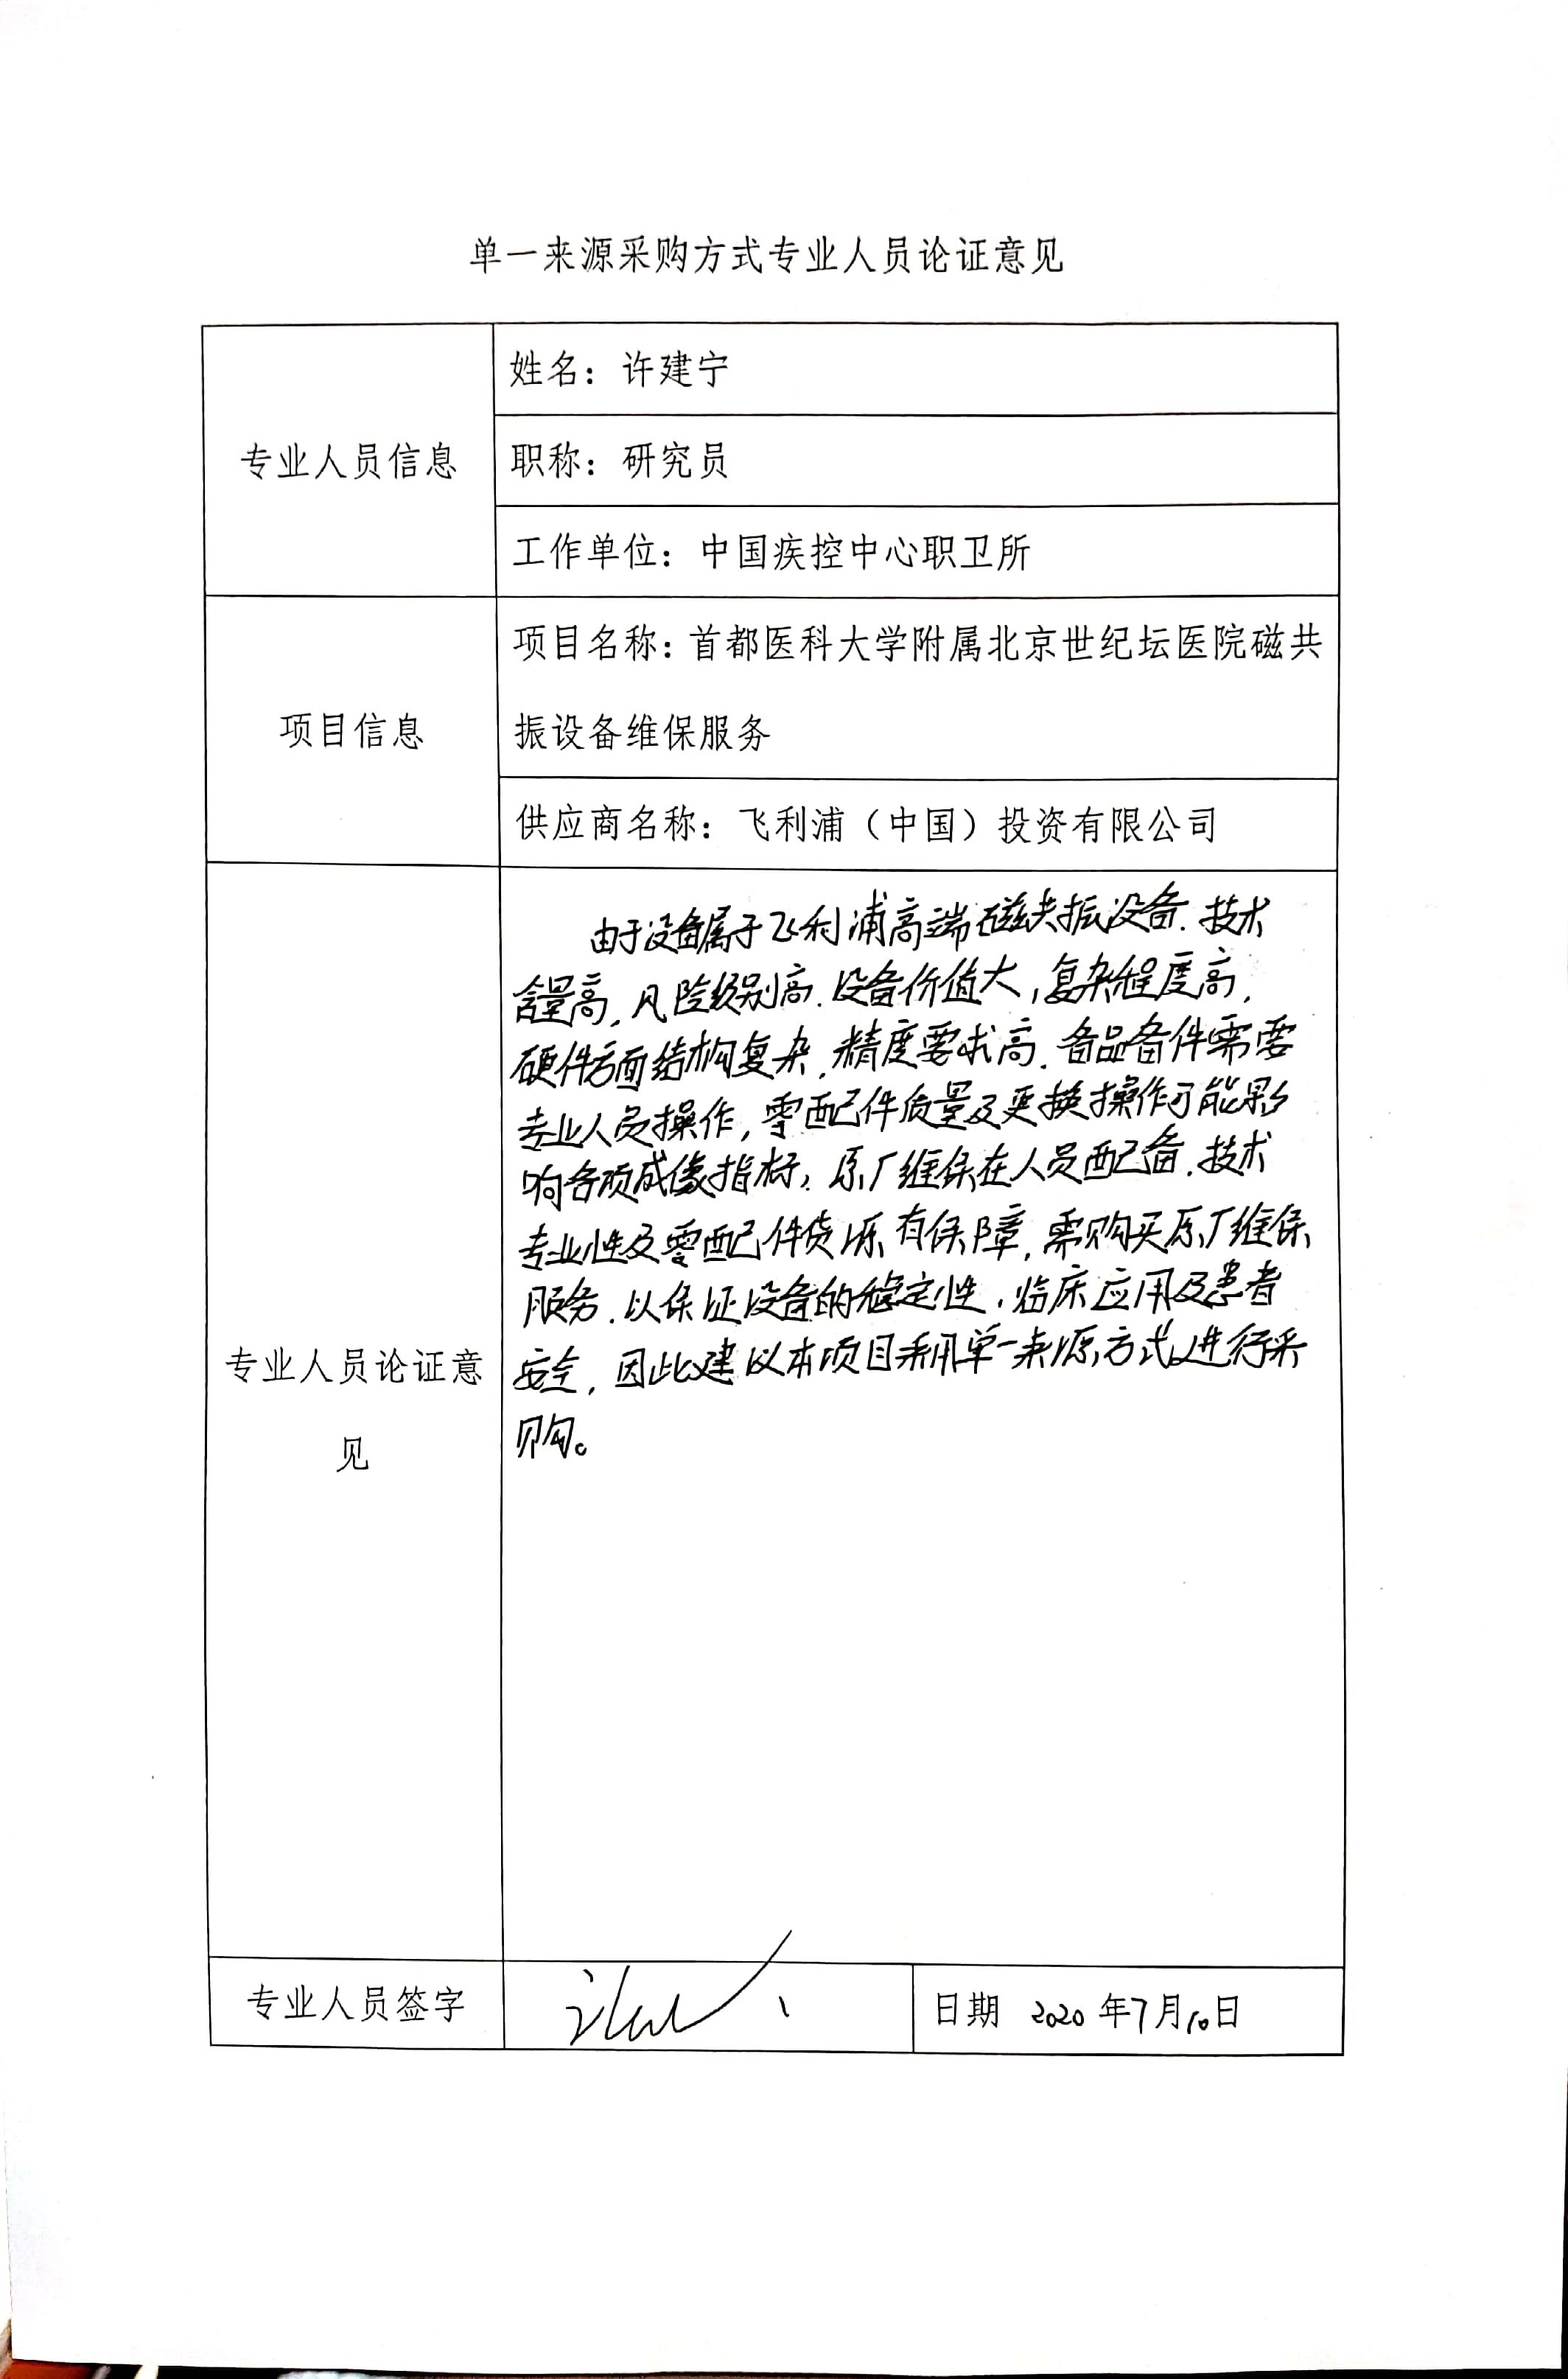 单一来源采购方式专业人员论证意见
专业人员信息
姓名：许建宁
职称：研究员
工作单位：中国疾控中心职卫所
项目信息
项目名称：首都医科大学附属北京世纪坛医院磁共
振设备维保服务
供应商名称：飞利浦（中国）投资有限公司
专业人员论证意
见
由于设备属于飞利浦高端磁共振设备.技术
含量高,风险级别高.设备价值大,复杂程度高,
硬件方面结构复杂,精度要求高.备品备件需要
专业人员操作,零配件质量及更换操作可能影
响各项成像指标,原厂维保在人员配备.技术
专业性及零配件货源有保障,需购买原厂维保
服务.以保证设备的稳定性.临床应用及患者
安全,因此建以本项目采用单一来源方式进行采
购。
专业人员签字
日期 2020年7月10日